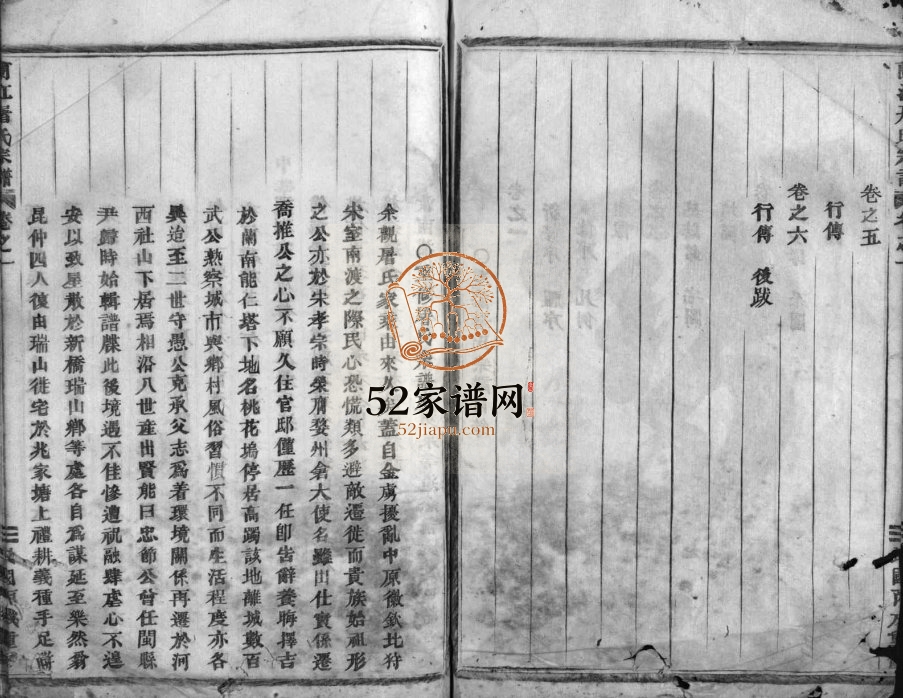 卷之五
行傳
卷之六
行傳　後跋
余觀屠氏家乘由來蓋自金虜擾亂中原徽欽北狩
宋室南渡之際民心恐慌類多避敵遷徙而貴族始祖形
之公亦於宋孝宗時榮膺婺州倉大使名雖出仕實係遷
喬推公之心不願久住官邸僅歷一任卽告辭養晦擇吉
於蘭南能仁塔下地名桃花塢停居高躅該地離城數百
武公熟察城市與鄉村風俗習慣不同而生活程度亦各
異迨至二世守愚公克承父志爲着環境關係再遷於河
西社山下居焉相沿八世產出賢能曰忠節公曾任閩縣
尹歸時始輯譜牒此後境遇不佳慘遭祝融肆虐心不遑
安以致星散於新橋瑞山鄉等處各自爲謀延至樂然翁
昆仲四人復由瑞山徙宅於兆家塘上禮耕義種手足
屠氏宗譜
卷之一
52家谱网
52jiapu.com